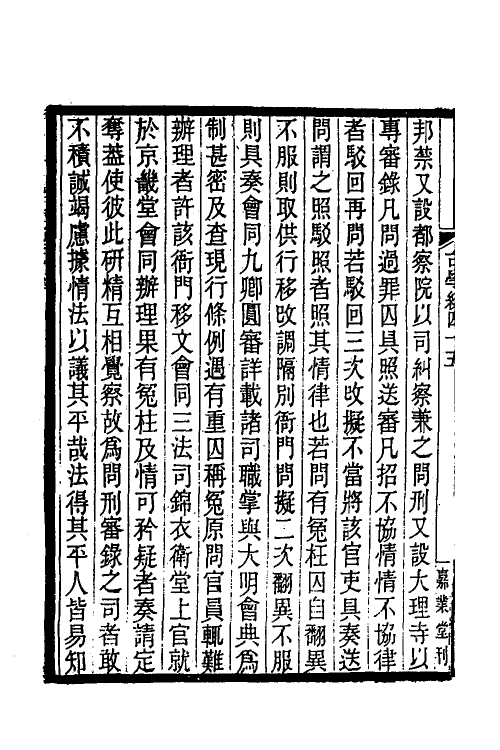 古學彙四十五
嘉業堂刊
邦禁又設都察院以司糾察兼之問刑又設大理寺以
專審錄凡問過罪囚具照送審凡招不協情情不協律
者駁回再問若駁回三次攺擬不當將該官吏具奏送
問謂之照駁照者照其情律也若問有冤枉囚自翻異
不服則取供行移攺調隔別衙門問擬二次翻異不服
則具奏會同九卿圓審詳載諸司職掌與大明會典爲
制甚密及查現行條例遇有重囚稱冤原問官員輒難
辦理者許該衙門移文會同三法司錦衣衛堂上官就
於京畿堂會同辦理果有冤枉及情可矜疑者奏請定
奪葢使彼此硏精互相覺察故爲問刑審錄之司者敢
不積誠竭慮據情法以議其平哉法得其平人皆易知